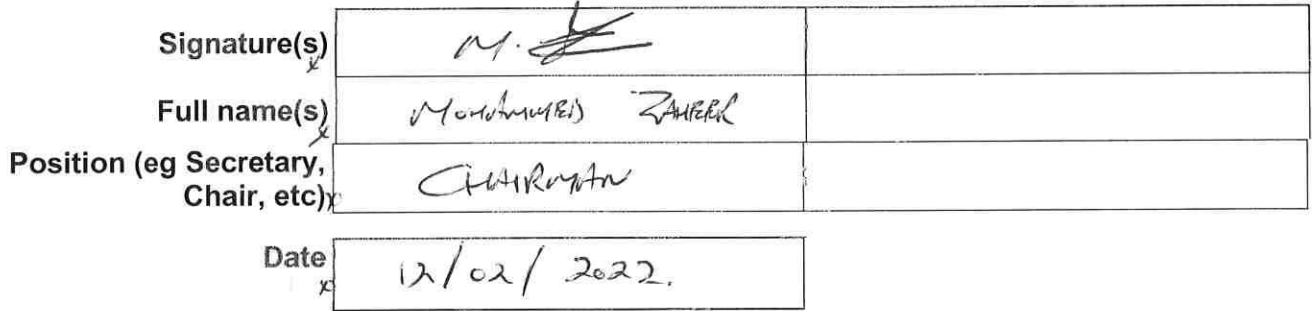 Signature(s) M.
Full name(s) MOHAMMED ZAHEER
Position (eg Secretary,
Chair, etc) CHAIRMAN
Date 12/02/2022.